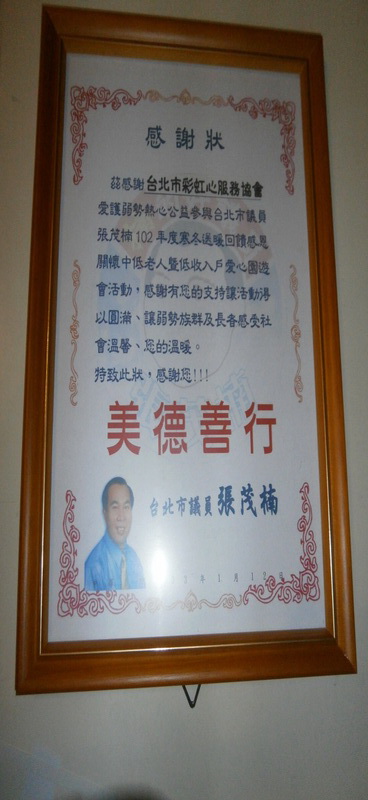 感謝狀
茲感謝台北市彩虹心服務協會
愛護弱勢熱心公益參與台北市議員
張茂楠102年度寒冬送暖回饋感恩
關懷中低老人暨低收入戶愛心園遊
會活動，感謝有您的支持讓活動得
以圓滿、讓弱勢族群及長者感受社
會溫馨、您的溫暖。
特致此狀，感謝您!!!
美德善行
台北市議員 張茂楠
年1月12日